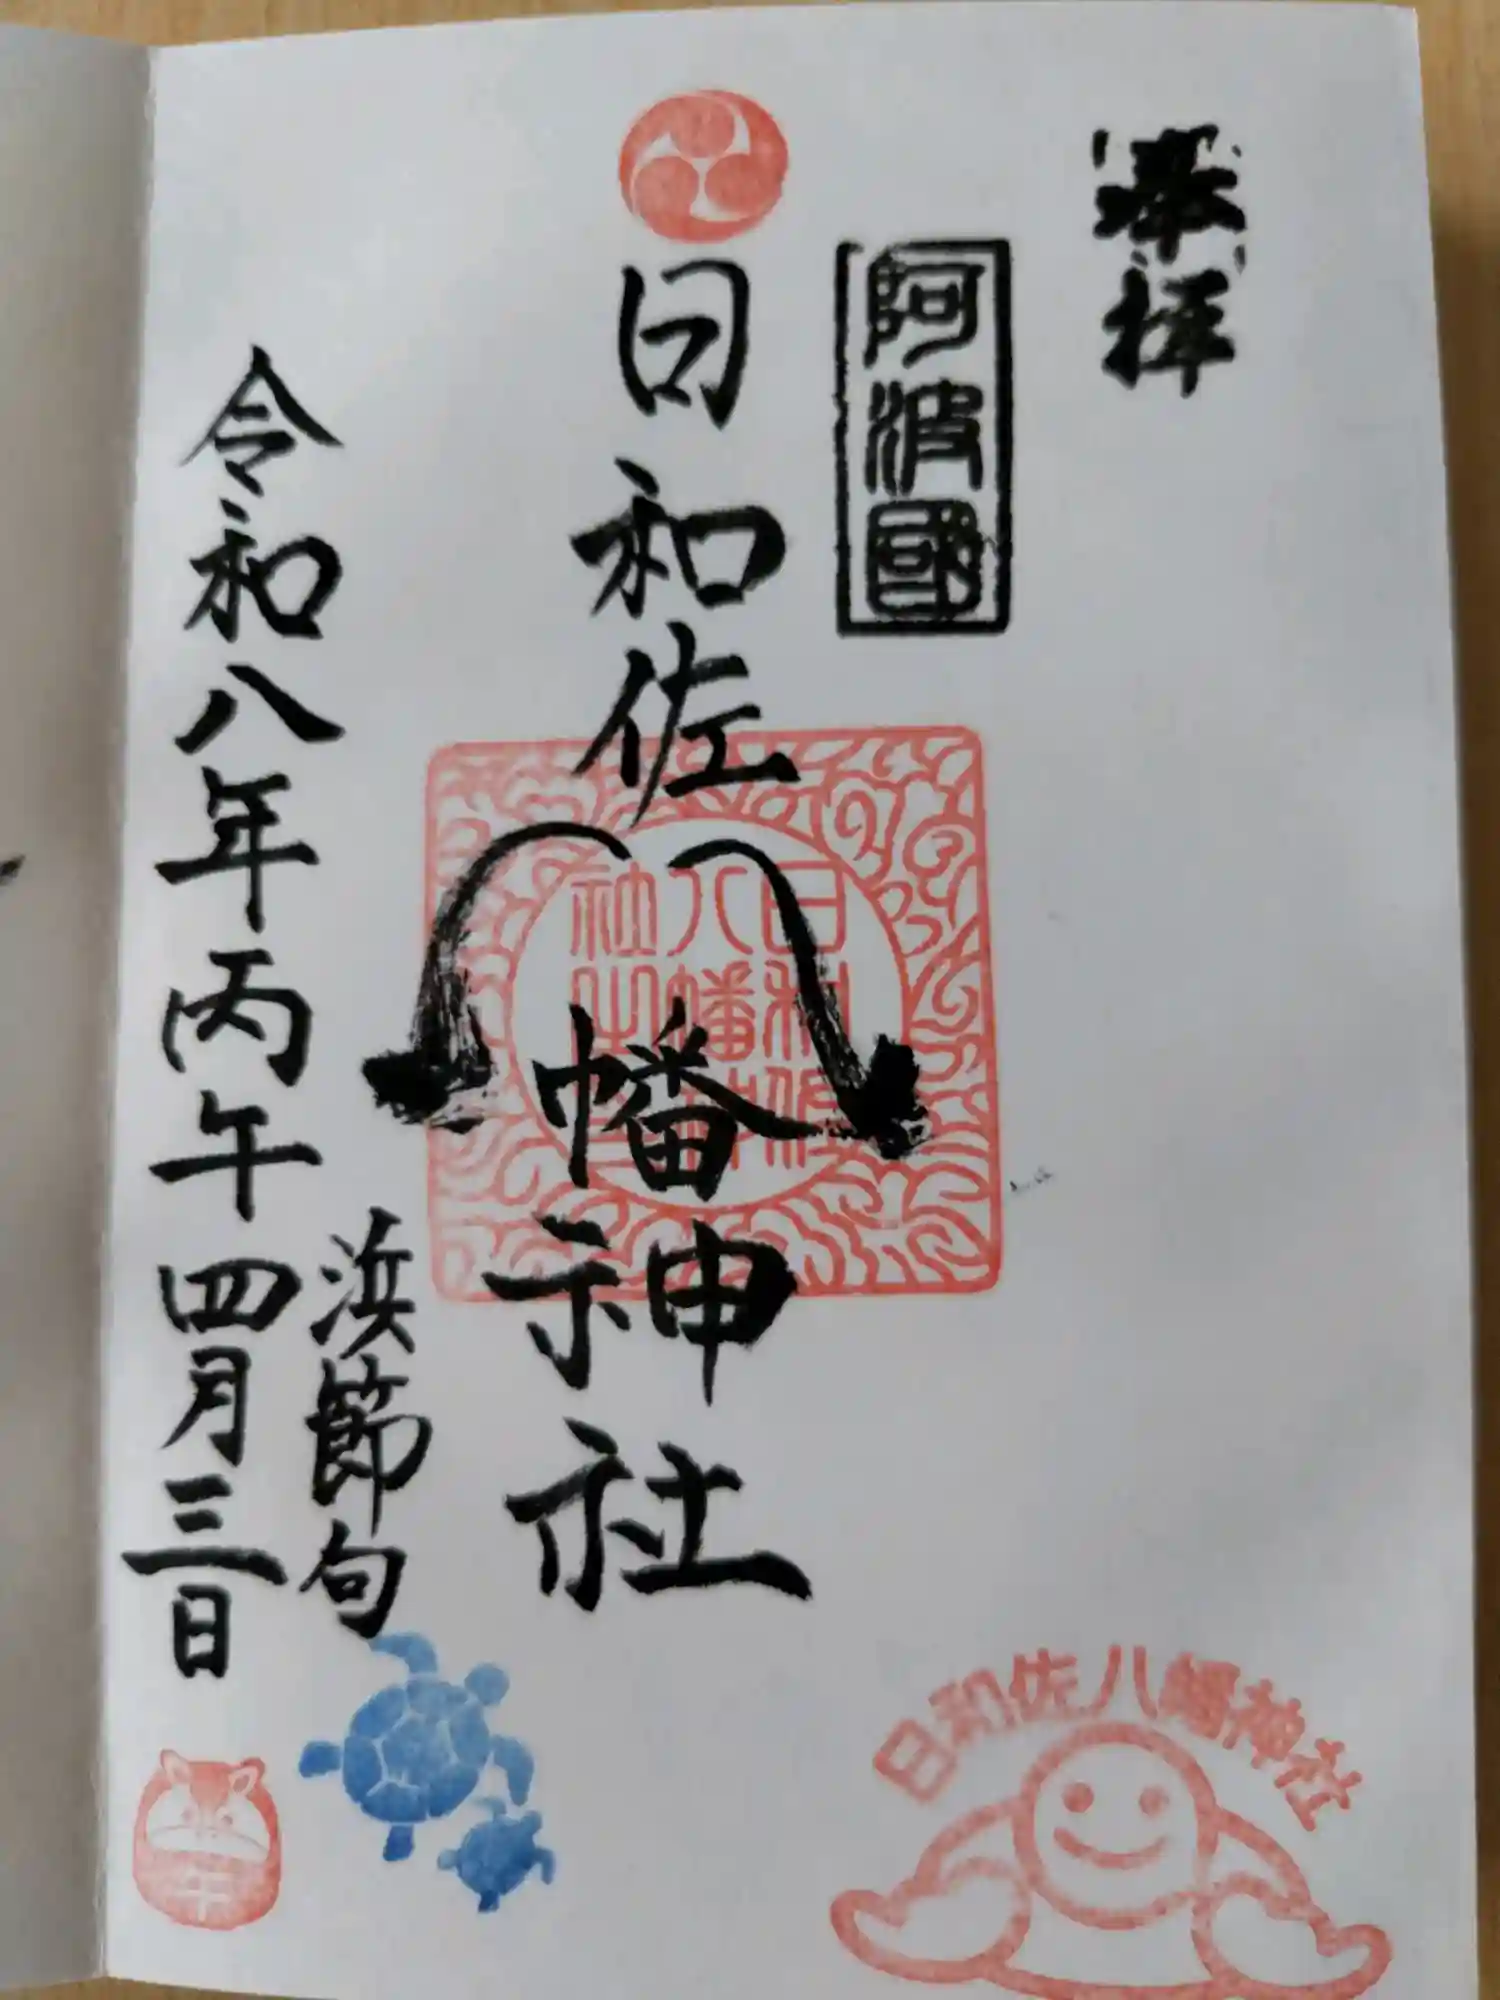 奉拝
阿波國
日和佐八幡神社
日和佐
八幡神
社之印
浜節句
令和八年丙午四月三日
午
日和佐八幡神社